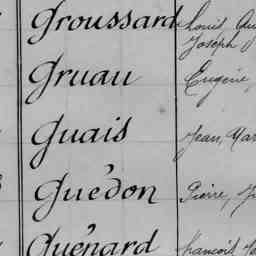 Groussard Louis
Joseph
Gruau Eugène,
Guais Jean, Mar
Guédon Pierre,
Guénard François